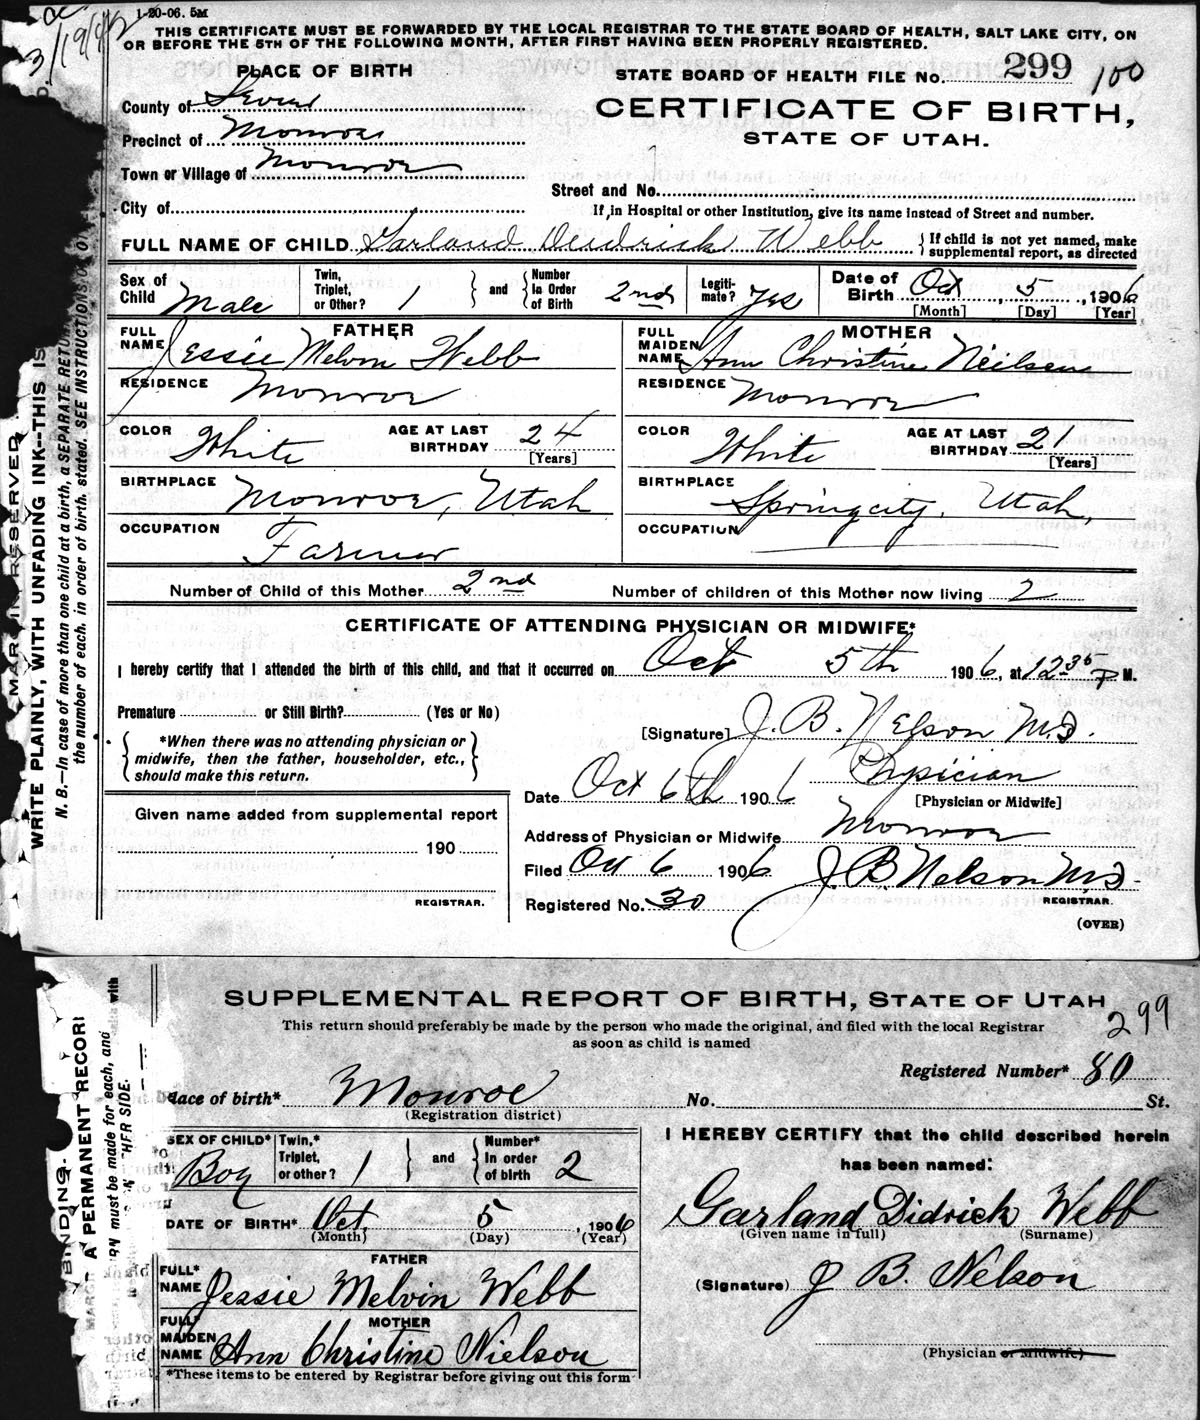 1-20-06. 5M
3/19/42
THIS CERTIFICATE MUST BE FORWARDED BY THE LOCAL REGISTRAR TO THE STATE BOARD OF HEALTH, SALT LAKE CITY, ON
OR BEFORE THE 5TH OF THE FOLLOWING MONTH, AFTER FIRST HAVING BEEN PROPERLY REGISTERED.
PLACE OF BIRTH
STATE BOARD OF HEALTH FILE No. 299 100
County of Sevier
CERTIFICATE OF BIRTH,
Precinct of Monroe
STATE OF UTAH.
Town or Village of Monroe
Street and No.
City of
If in Hospital or other Institution, give its name instead of Street and number.
FULL NAME OF CHILD Garland Deidrick Webb { If child is not yet named, make supplemental report, as directed
Sex of Child Male
Twin, Triplet, or Other? 1 } and { Number In Order of Birth 2nd
Legitimate? Yes
Date of Birth Oct, 5, 1906
[Month] [Day] [Year]
FATHER
FULL NAME Jessie Melvin Webb
RESIDENCE Monroe
COLOR White AGE AT LAST BIRTHDAY 24
[Years]
BIRTHPLACE Monroe, Utah
OCCUPATION Farmer
MOTHER
FULL MAIDEN NAME Ann Christine Neilsen
RESIDENCE Monroe
COLOR White AGE AT LAST BIRTHDAY 21
[Years]
BIRTHPLACE Springcity, Utah,
OCCUPATION
Number of Child of this Mother 2nd Number of children of this Mother now living 2
CERTIFICATE OF ATTENDING PHYSICIAN OR MIDWIFE*
I hereby certify that I attended the birth of this child, and that it occurred on Oct 5th 1906, at 12 35 P M.
Premature or Still Birth? (Yes or No)
{ *When there was no attending physician or
midwife, then the father, householder, etc.,
should make this return. }
[Signature] J. B. Nelson M.D.
Physician
Date Oct 6th 1906 [Physician or Midwife]
Given name added from supplemental report
Address of Physician or Midwife Monroe
190
Filed Oct 6 1906 J. B. Nelson M.D.
REGISTRAR.
Registered No. 30 REGISTRAR.
(OVER)
MARGIN RESERVED
WRITE PLAINLY, WITH UNFADING INK--THIS IS
N. B.--In case of more than one child at a birth, a SEPARATE RETURN
the number of each, in order of birth, stated. SEE INSTRUCTIONS
SUPPLEMENTAL REPORT OF BIRTH, STATE OF UTAH
299
This return should preferably be made by the person who made the original, and filed with the local Registrar
as soon as child is named
Registered Number* 80
lace of birth* Monroe No. St.
(Registration district)
SEX OF CHILD* Boy
Twin,* Triplet, or other? 1 } and { Number* In order of birth 2
DATE OF BIRTH* Oct. 5, 1906
(Month) (Day) (Year)
FATHER
FULL* NAME Jessie Melvin Webb
MOTHER
FULL* MAIDEN NAME Ann Christine Nielson
*These items to be entered by Registrar before giving out this form
I HEREBY CERTIFY that the child described herein
has been named:
Garland Didrick Webb
(Given name in full) (Surname)
(Signature) J B. Nelson
(Physician or Midwife)
BINDING.
A PERMANENT RECORD
RN must be made for each, and
HER SIDE.